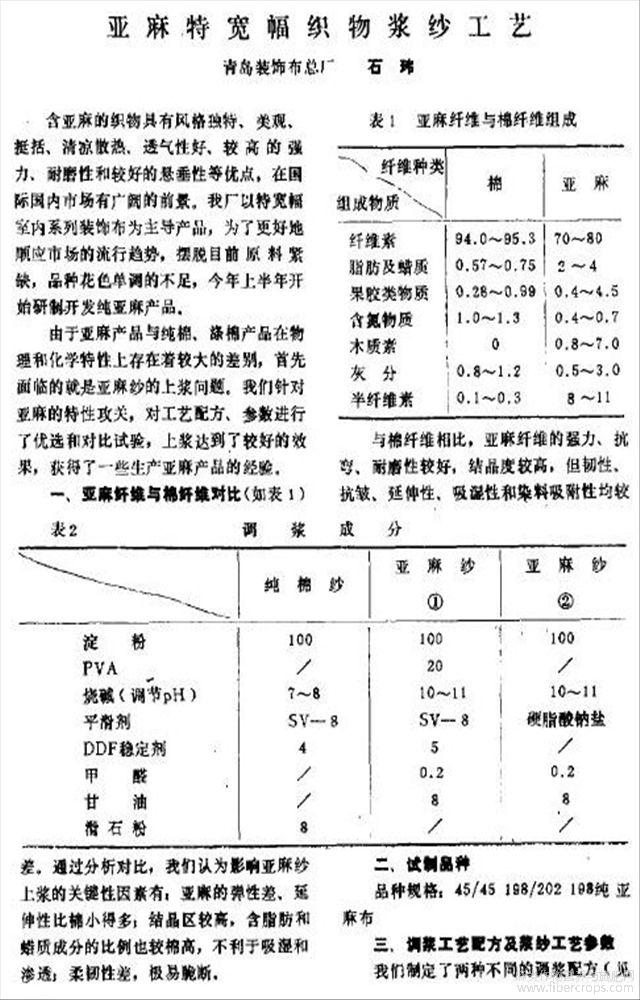 亚麻特宽幅织物浆纱工艺
青岛装饰布总厂 石玮
含亚麻的织物具有风格独特、美观、
挺括、清凉散热、透气性好、较高的强
力、耐磨性和较好的悬垂性等优点，在国
际国内市场有广阔的前景。我厂以特宽幅
室内系列装饰布为主导产品，为了更好地
顺应市场的流行趋势，摆脱目前原料紧
缺，品种花色单调的不足，今年上半年开
始研制开发纯亚麻产品。
由于亚麻产品与纯棉、涤棉产品在物
理和化学特性上存在着较大的差别，首先
面临的就是亚麻纱的上浆问题。我们针对
亚麻的特性攻关，对工艺配方、参数进行
了优选和对比试验，上浆达到了较好的效
果，获得了一些生产亚麻产品的经验。
一、亚麻纤维与棉纤维对比（如表1）
表1 亚麻纤维与棉纤维组成
纤维种类 棉 亚麻
组成物质
纤维素 94.0～95.3 70～80
脂肪及蜡质 0.57～0.75 2～4
果胶类物质 0.28～0.99 0.4～4.5
含氮物质 1.0～1.3 0.4～0.7
木质素 0 0.8～7.0
灰分 0.8～1.2 0.5～3.0
半纤维素 0.1～0.3 8～11
与棉纤维相比，亚麻纤维的强力、抗
弯、耐磨性较好，结晶度较高，但韧性、
抗皱、延伸性、吸湿性和染料吸附性均较
表2 调浆成分
纯棉纱 亚麻纱① 亚麻纱②
淀粉 100 100 100
PVA ／ 20 ／
烧碱（调节pH） 7～8 10～11 10～11
平滑剂 SV—8 SV—8 硬脂酸钠盐
DDF稳定剂 4 5 ／
甲醛 ／ 0.2 0.2
甘油 ／ 8 8
滑石粉 8 ／ ／
差。通过分析对比，我们认为影响亚麻纱
上浆的关键性因素有：亚麻的弹性差、延
伸性比棉小得多；结晶区较高，含脂肪和
蜡质成分的比例也较棉高，不利于吸湿和
渗透；柔韧性差，极易脆断。
二、试制品种
品种规格：45/45 198/202 198纯亚
麻布
三、调浆工艺配方及浆纱工艺参数
我们制定了两种不同的调浆配方（见
www.fibercrops.com